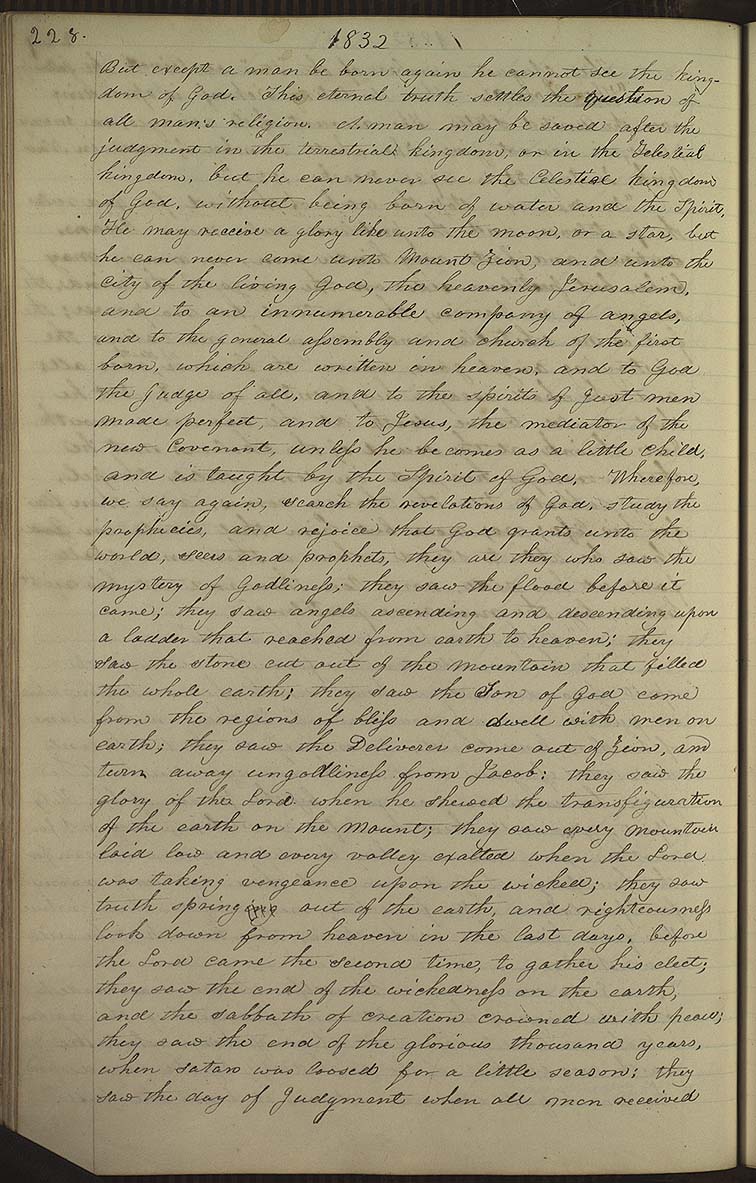 228.
1832
But except a man be born again he cannot see the king-
dom of God. This eternal truth settles the question of
all man's religion. A man may be saved after the
judgment in the terrestrial kingdom, or in the Telestial
kingdom, but he can never see the Celestial kingdom
of God, without being born of water and the Spirit,
He may receive a glory like unto the moon, or a star, but
he can never come unto Mount Zion, and unto the
city of the living God, the heavenly Jerusalem,
and to an innumerable company of angels,
and to the general assembly and church of the first
born, which are written in heaven, and to God
the Judge of all, and to the spirits of Just men
made perfect, and to Jesus, the mediator of the
new Covenant, unless he becomes as a little child,
and is taught by the Spirit of God. Wherefore,
we say again, search the revelations of God, study the
prophicies, and rejoice that God grants unto the
world, seers and prophets, they are they who saw the
mystery of Godliness; they saw the flood before it
came; they saw angels ascending and descending upon
a ladder that reached from earth to heaven; they
saw the stone cut out of the mountain that filled
the whole earth; they saw the Son of God come
from the regions of bliss and dwell with men on
earth; they saw the Deliverer come out of Zion, and
turn away ungodliness from Jacob; they saw the
glory of the Lord when he shewed the transfiguration
of the earth on the Mount; they saw every mountain
laid low and every valley exalted when the Lord
was taking vengeance upon the wicked; they saw
truth spring out of the earth, and righteousness
look down from heaven in the last days, before
the Lord came the second time, to gather his elect;
they saw the end of the wickedness on the earth,
and the sabbath of creation crowned with peace;
they saw the end of the glorious thousand years,
when satan was loosed for a little season; they
saw the day of Judgment when all men received